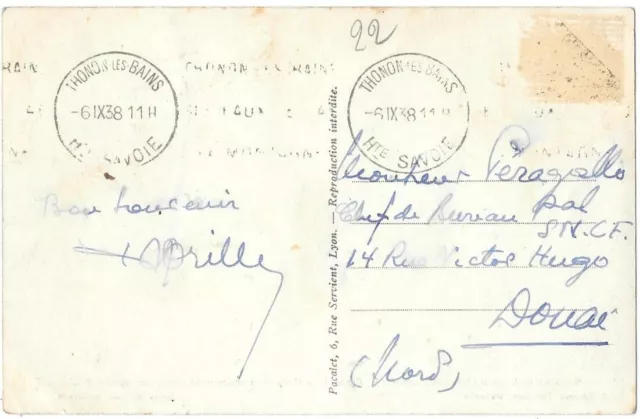 22
THONON-LES-BAINS
-6 IX 38 11 H
Hte SAVOIE
THONON-LES-BAINS
-6 IX 38 11 H
Hte SAVOIE
Bon Souvenir
Pacalet, 6, Rue Servient, Lyon. — Reproduction interdite.
Monsieur Péragallo
Chef de Bureau pal
SNCF
14 Rue Victor Hugo
Douai
(Nord)